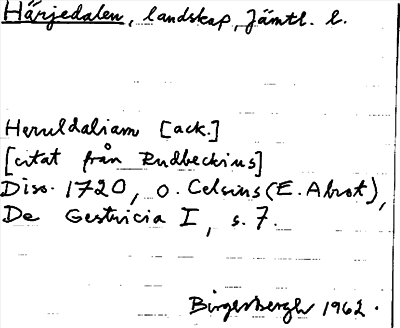 Härjedalen, landskap, Jämtl. l.
Heruldaliam [ack.]
[citat från Rudbeckius]
Diss. 1720, O. Celsius (E. Abrot),
De Gestricia I, s. 7.
1962.